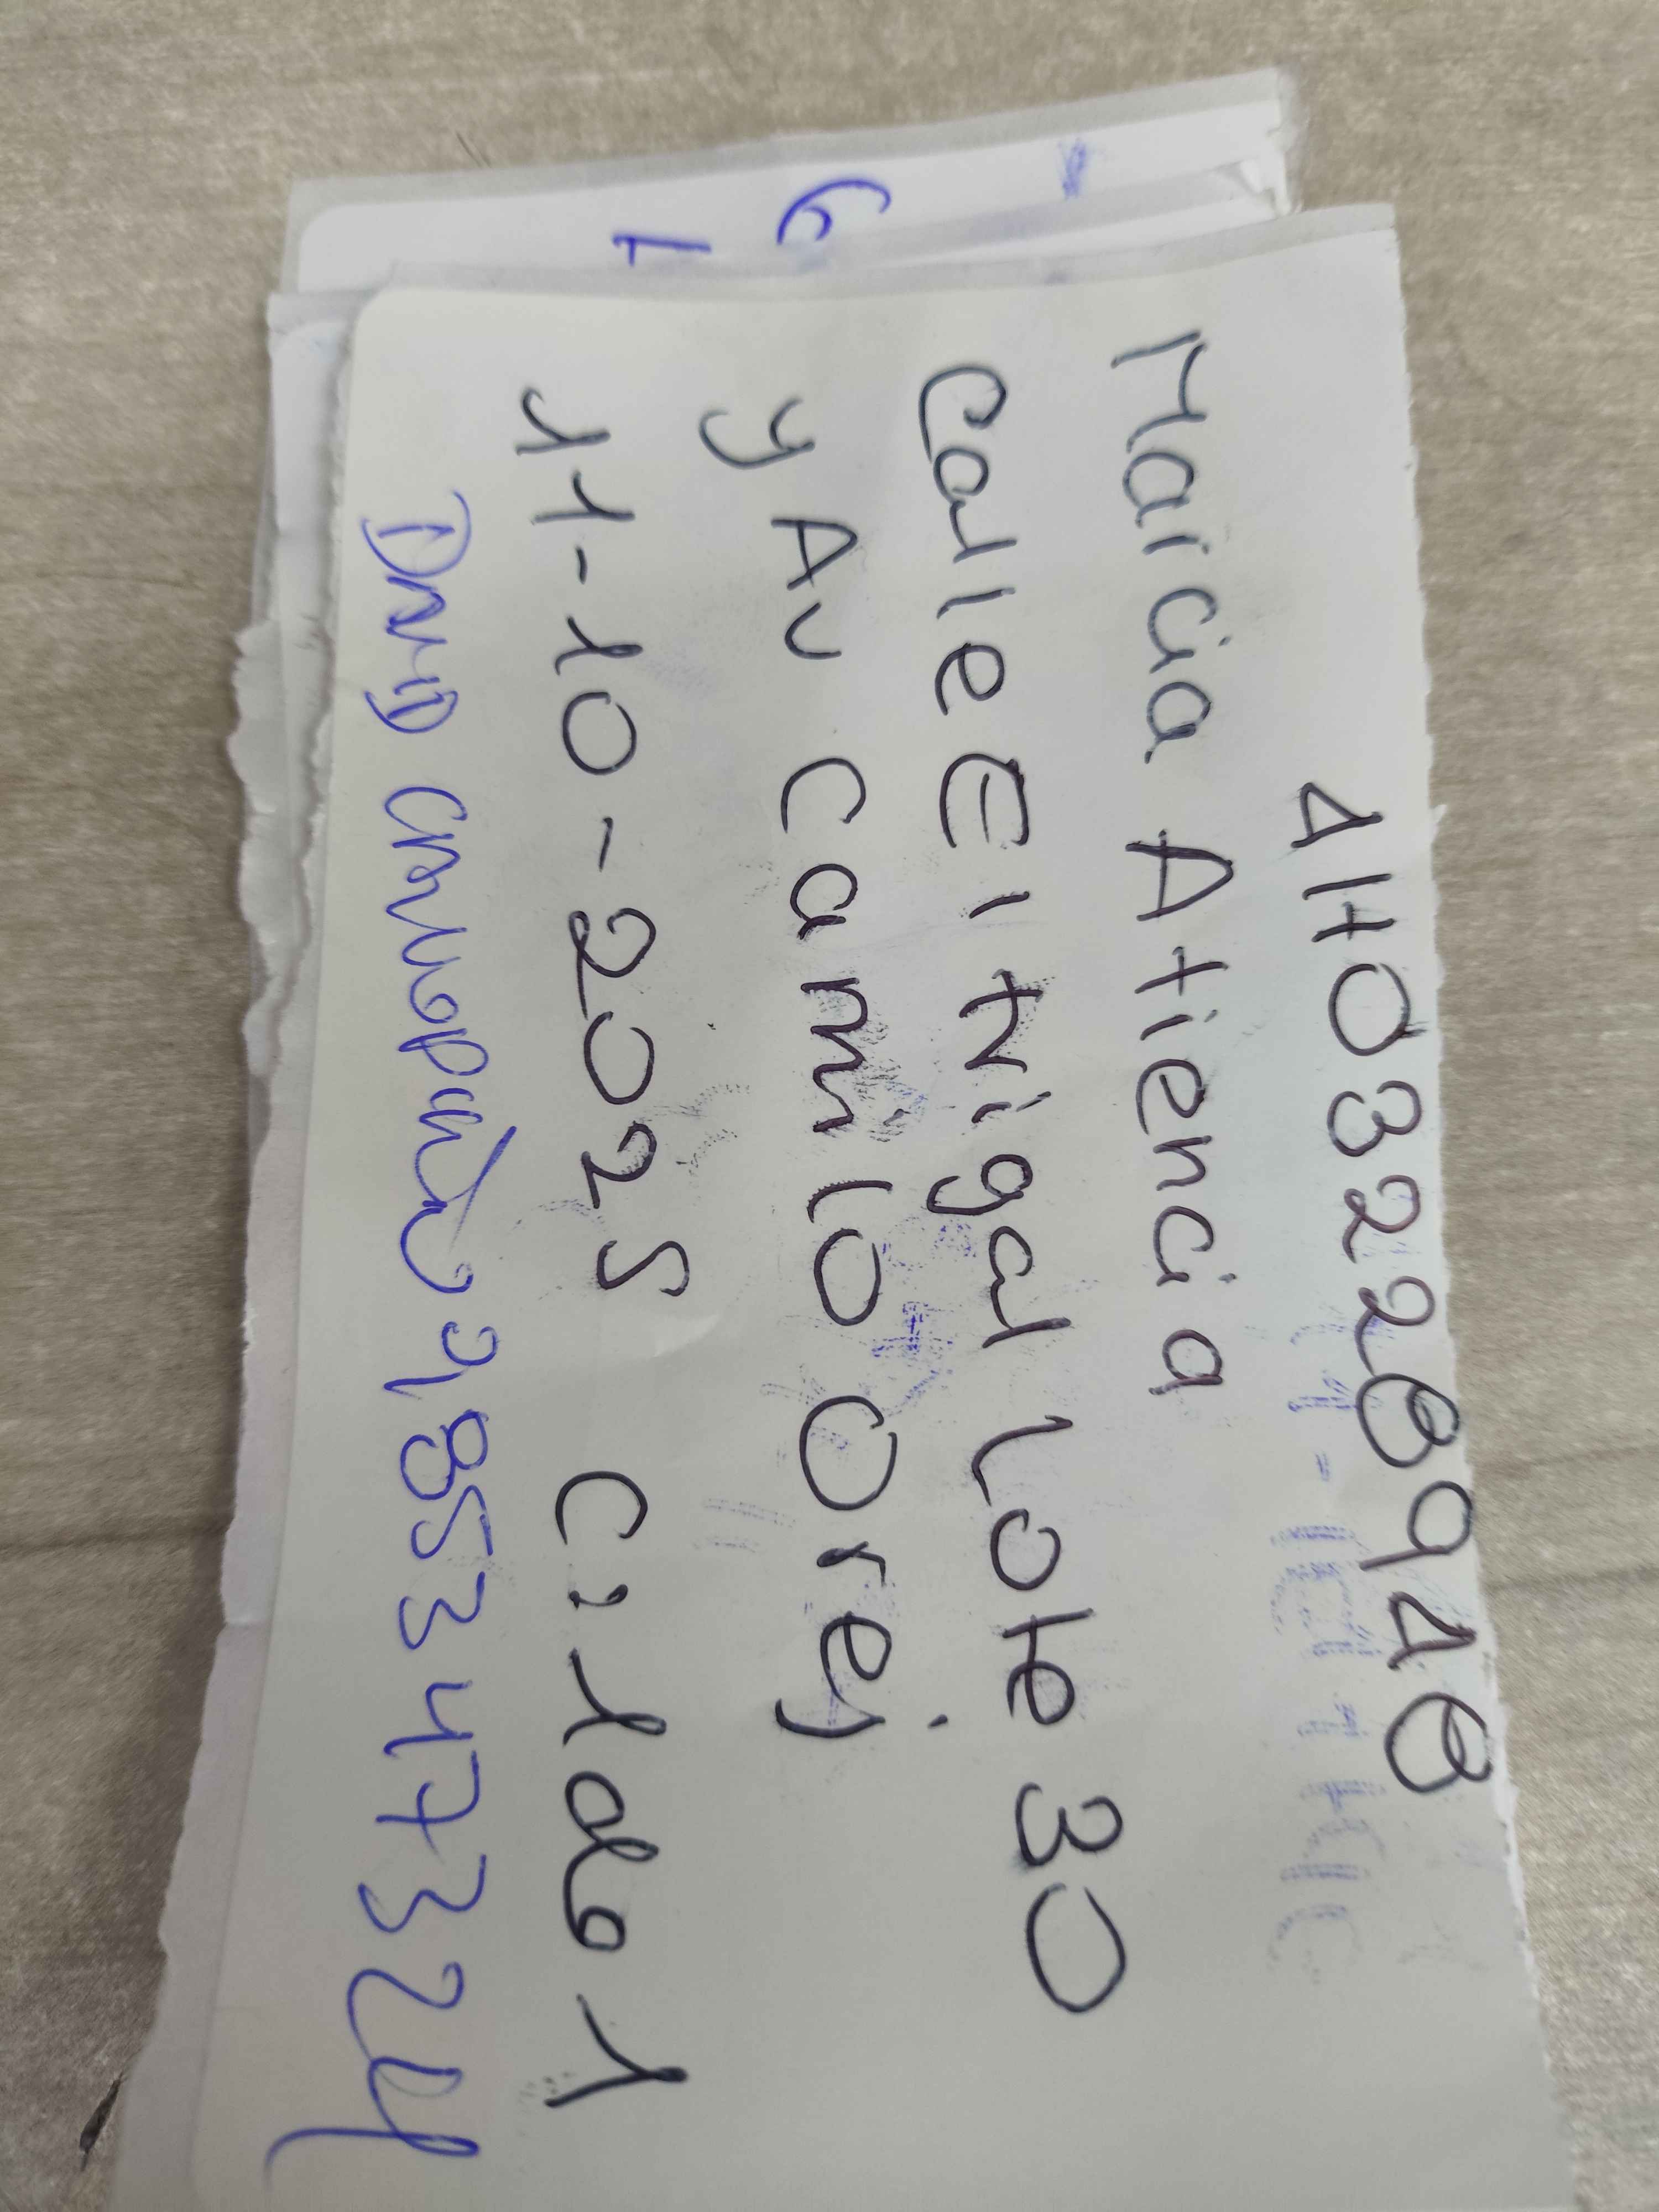 1103228918
Marcia Atiencia
Calle El trigal lote 30
y Av Camilo Orej
11-10-2025 C:1 de 1
DAVID 2,85347324
6
1